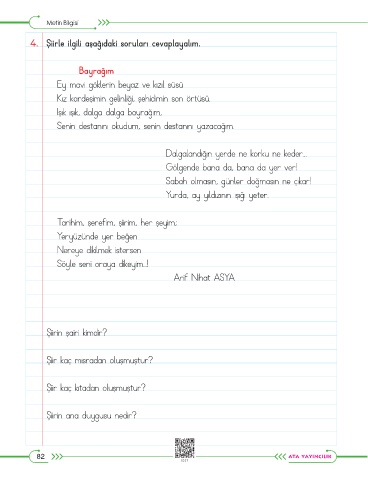 Metin Bilgisi
4. Şiirle ilgili aşağıdaki soruları cevaplayalım.
Bayrağım
Ey mavi göklerin beyaz ve kızıl süsü
Kız kardeşimin gelinliği, şehidimin son örtüsü.
Işık ışık, dalga dalga bayrağım,
Senin destanını okudum, senin destanını yazacağım.
Dalgalandığın yerde ne korku ne keder...
Gölgende bana da, bana da yer ver!
Sabah olmasın, günler doğmasın ne çıkar!
Yurda, ay yıldızının ışığı yeter.
Tarihim, şerefim, şiirim, her şeyim;
Yeryüzünde yer beğen
Nereye dikilmek istersen
Söyle seni oraya dikeyim...!
Arif Nihat ASYA
Şiirin şairi kimdir?
Şiir kaç mısradan oluşmuştur?
Şiir kaç kıtadan oluşmuştur?
Şiirin ana duygusu nedir?
82
ATA YAYINCILIK